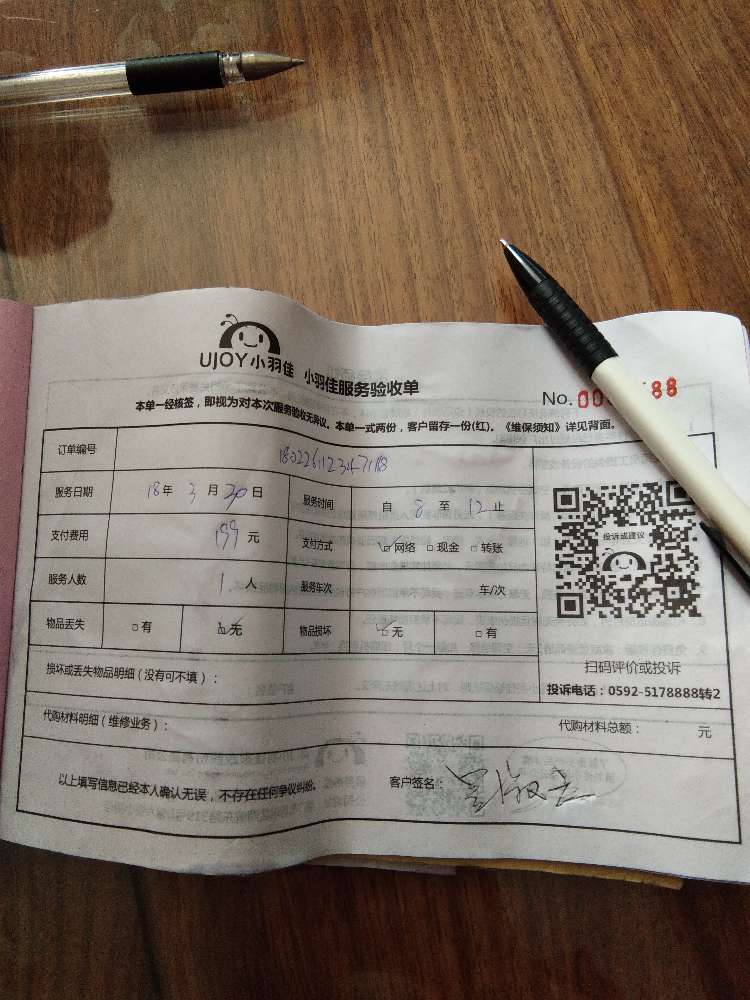 UJOY小羽佳 小羽佳服务验收单
No. 00 88
本单一经核签，即视为对本次服务验收无异议。本单一式两份，客户留存一份(红)。《维保须知》详见背面。
订单编号
服务日期 18年 3月 20日 服务时间 自 8 至 12 止
支付费用 199 元 支付方式 ☑网络 □现金 □转账
服务人数 1 人 服务车次 车/次
物品丢失 □有 ☑无 物品损坏 ☑无 □有
投诉或建议
扫码评价或投诉
投诉电话：0592-5178888转2
损坏或丢失物品明细（没有可不填）：
代购材料明细（维修业务）： 代购材料总额： 元
以上填写信息已经本人确认无误，不存在任何争议纠纷。 客户签名：